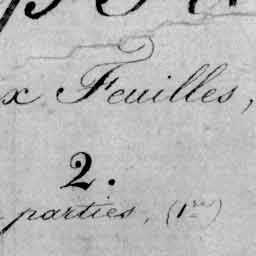 x Feuilles,
2.
parties, (1re)